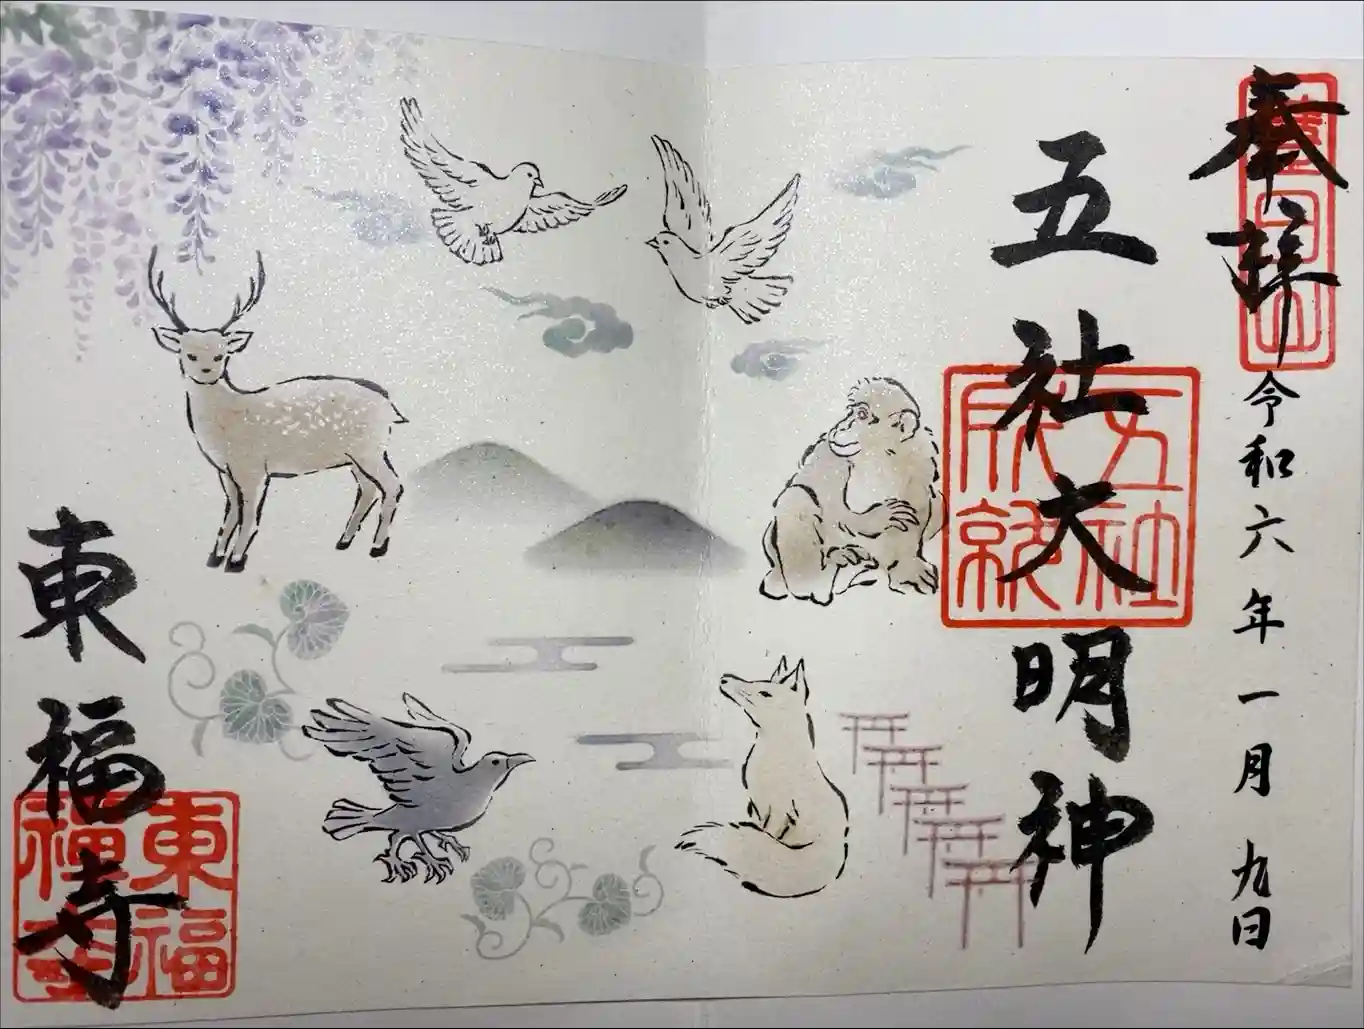 奉拝
令和六年一月九日
五社大明神
五社成就
東福寺
東福福寺